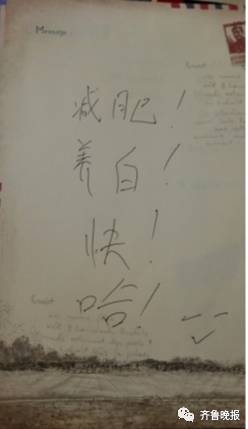 Message
减肥！
养白！
快！
哈！
齐鲁晚报